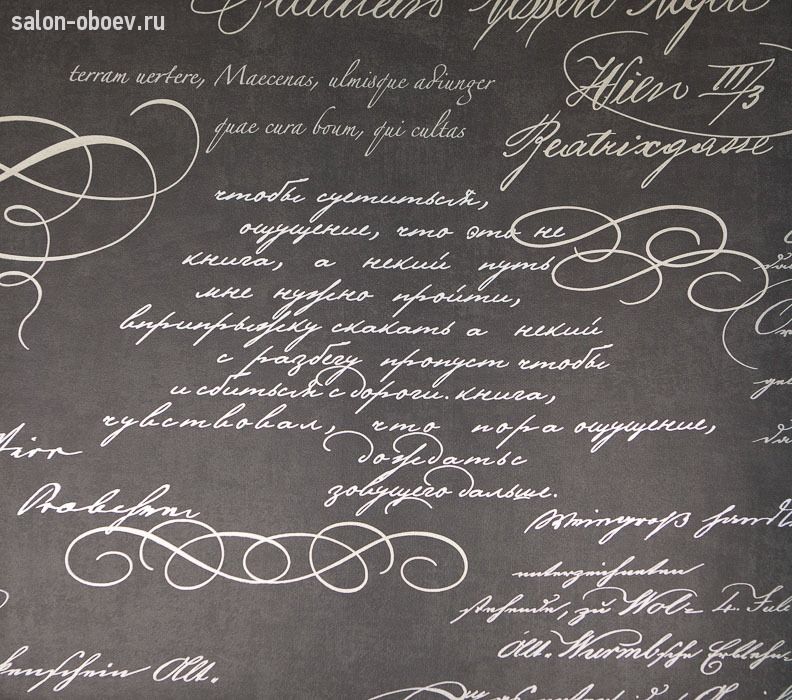 salon-oboev.ru
terram uertere, Maecenas, ulmisque adiunger
quae cura boum, qui cultas
Wien III/3
Beatrixgasse
чтобы суетиться,
ощущение, что это не
книга, а некий путь
мне нужно пройти,
вприпрыжку скакать а некий
с разбегу пропуст чтобы
и сбиться с дороги. книга,
чувствовал, что пора ощущение,
дождатьс
зовущего дальше.
Weingroß handl
unterzeichneten
stehende, zu Wob= 4. Jul
Alt.
Alt. Wurmbsche Erblehn